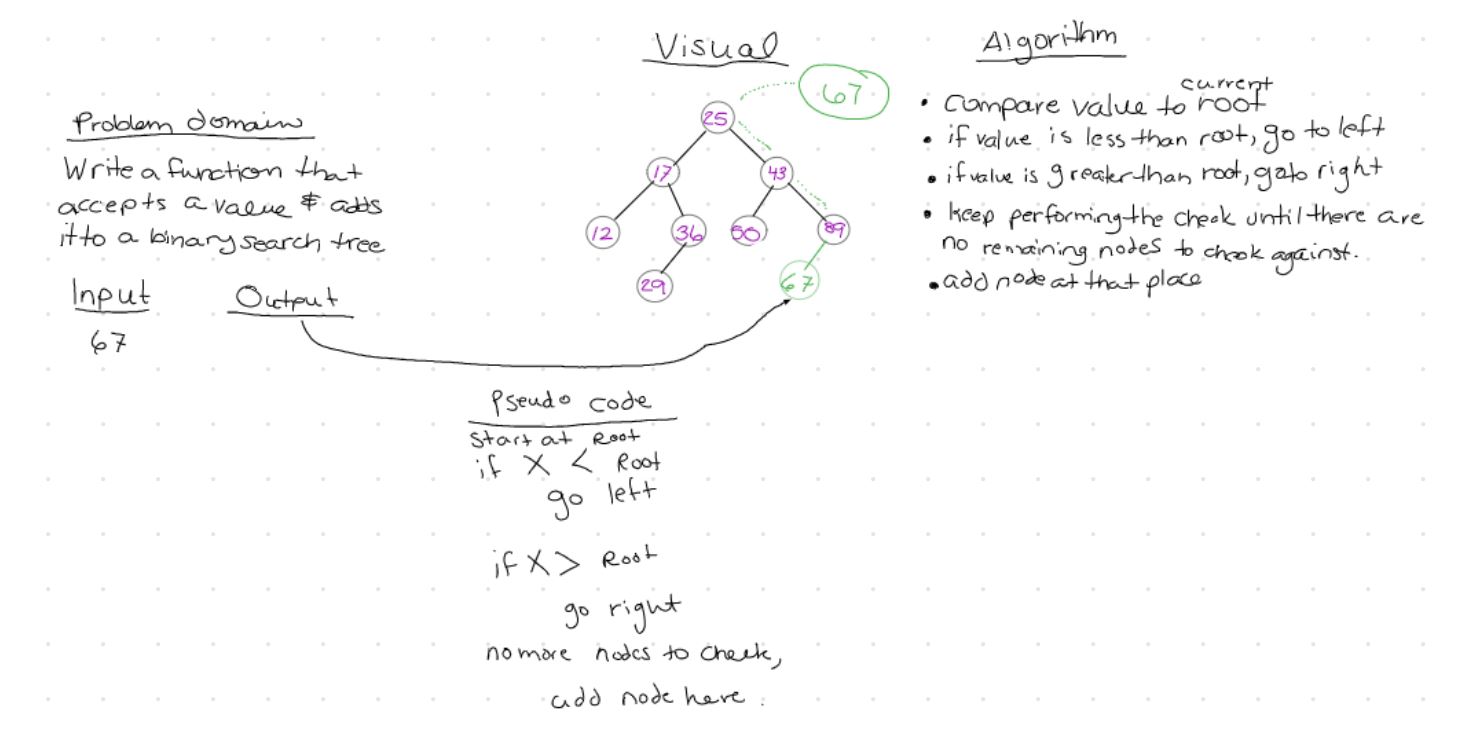 Problem domain
Write a function that
accepts a value & adds
it to a binary search tree
Input
Output
67
Visual
67
25
17
43
12
36
89
29
67
Algorithm
current
• Compare value to root
• if value is less than root, go to left
• if value is greater than root, go to right
• keep performing the check until there are
no remaining nodes to check against.
• add node at that place
Pseudo code
Start at Root
if X < Root
go left
if X > Root
go right
no more nodes to check,
add node here.